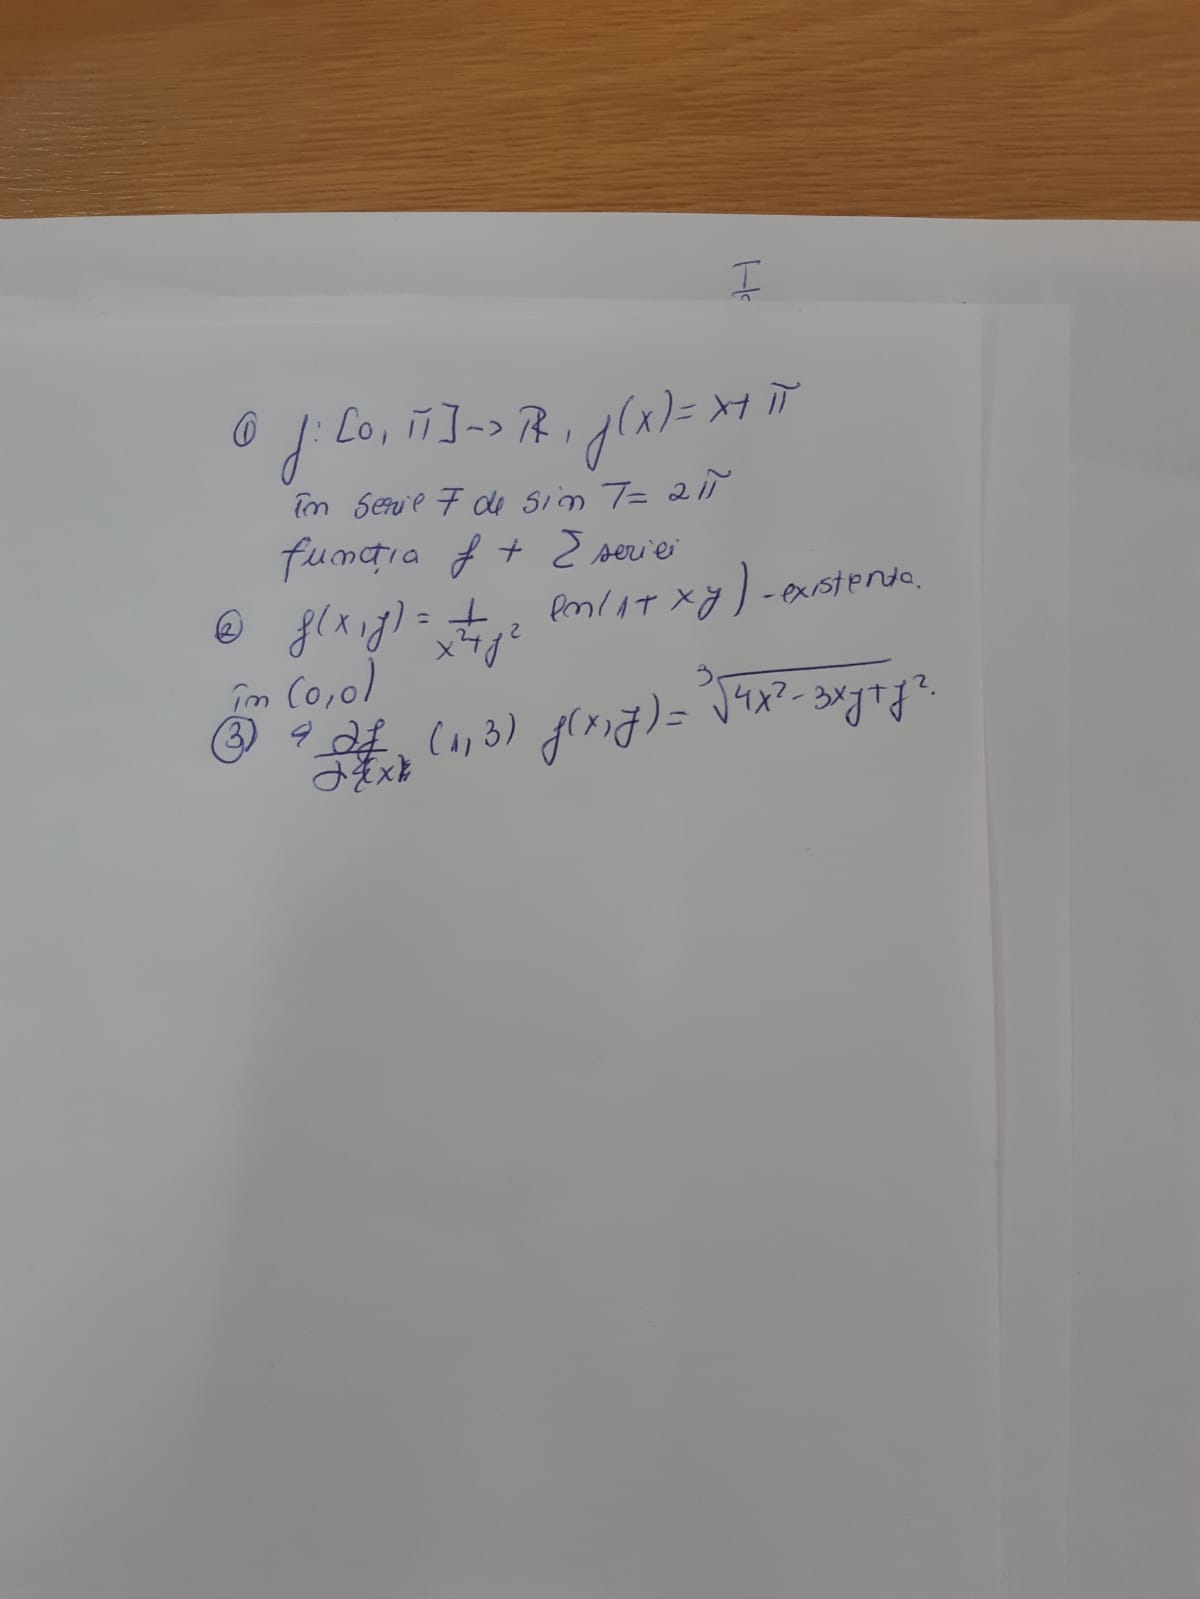 I
① f: [0, π] -> R, f(x) = x + π
în serie F de sin T = 2π
funcția f + Σ seriei
② f(x,y) = 1/(x²+y²) ln(1 + xy) - existența.
în (0,0)
③ ∂f/∂x (1,3) f(x,y) = ³√(4x² - 3xy + y².